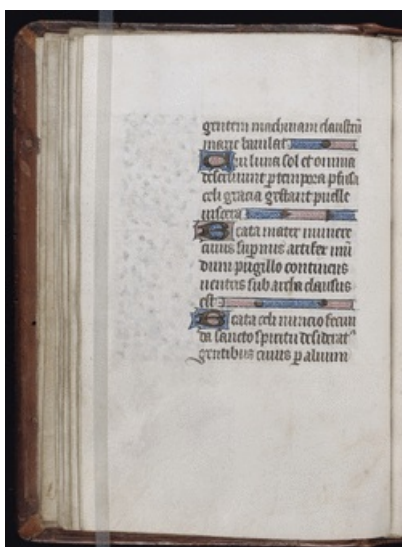 gentem machinam claustrū
marie baiulat
Cui luna sol et omnia
deserviunt p tempora p fusa
celi gracia gestant puelle
viscera
Beata mater munere
cuius supnus artifex mū
dum pugillo continens
ventris sub archa clausus
est
Beata celi nuncio fecun
da sancto spiritu desiderat
gentibus cuius p alvum